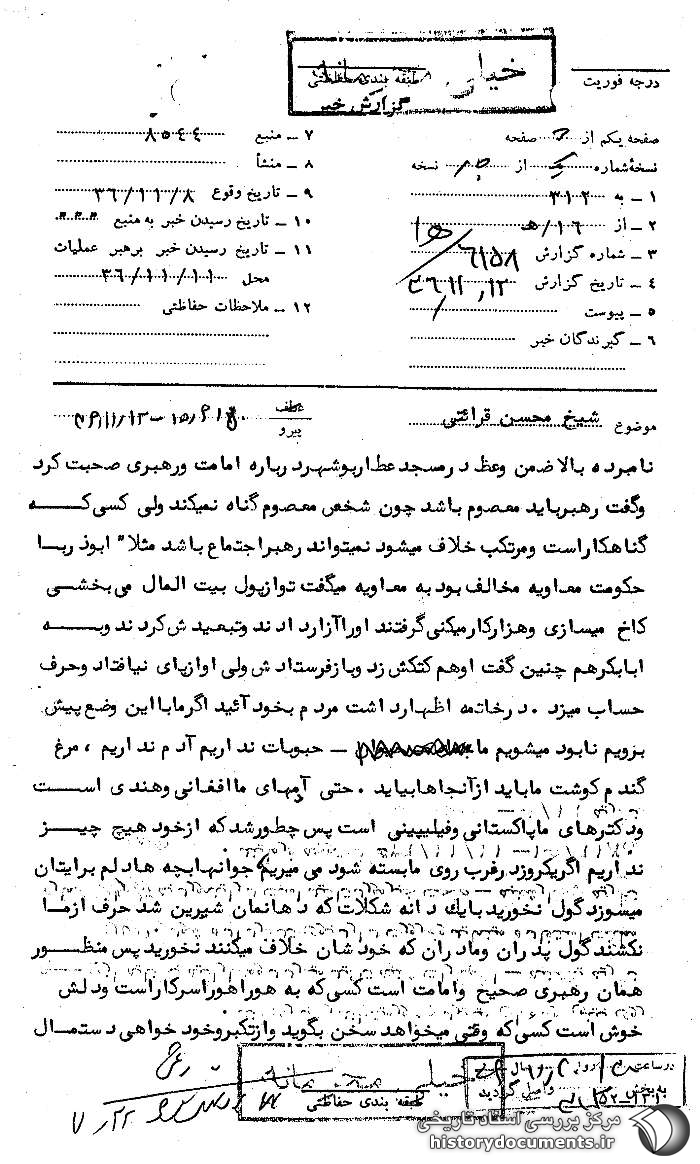 درجه فوریت
خیلی محرمانه
طبقه بندی حفاظتی
گزارش خبر
صفحه یکم از ۲ صفحه
نسخهٔ شماره از نسخه
۱ ـ به ۳۱۲
۲ ـ از ۱۶/ﻫ
۳ ـ شماره گزارش ۶۱۵۸/۱۵ﻫ
۴ ـ تاریخ گزارش ۳۶/۱۱/۱۲
۵ ـ پیوست
۶ ـ گیرندگان خبر
۷ ـ منبع ۸۵۴۴
۸ ـ منشأ
۹ ـ تاریخ وقوع ۳۶/۱۱/۸
۱۰ ـ تاریخ رسیدن خبر به منبع
۱۱ ـ تاریخ رسیدن خبر برهبر عملیات
محل ۳۶/۱۱/۱۱
۱۲ ـ ملاحظات حفاظتی
موضوع شیخ محسن قرائتی
عطف
پیرو
نامبرده بالا ضمن وعظ درمسجد عطار بوشهر درباره امامت ورهبری صحبت کرد
وگفت رهبر باید معصوم باشد چون شخص معصوم گناه نمیکند ولی کسی که
گناهکار است ومرتکب خلاف میشود نمیتواند رهبر اجتماع باشد مثلا" ابوذر با
حکومت معاویه مخالف بود به معاویه میگفت تو از پول بیت المال می بخشی
کاخ میسازی وهزار کار میکنی گرفتند اورا آزار دادند وتبعیدش کردند وبه
ابابکر هم چنین گفت او هم کتکش زد وباز فرستادش ولی او از پای نیافتاد وحرف
حساب میزد . درخاتمه اظهار داشت مردم بخود آئید اگر ما با این وضع پیش
برویم نابود میشویم ما ـ حبوبات نداریم آدم نداریم ، مرغ
گندم گوشت ما باید از آنجاها بیاید . حتی آمهای ما افغانی وهندی است
ودکترهای ما پاکستانی وفیلیپینی است پس چطور شد که از خود هیچ چیز
نداریم اگر یکروز در غرب روی ما بسته شود می میریم جوانها بچه ها دلم برایتان
میسوزد گول نخورید با یک دانه شکلات که دهانمان شیرین شد حرف از ما
نکشند گول پدران ومادران که خودشان خلاف میکنند نخورید پس منظور
همان رهبری صحیح وامامت است کسی که به هورا هورا سرکار است ودلش
خوش است کسی که وقتی میخواهد سخن بگوید واز تکبر وخودخواهی دستمال
خیلی محرمانه
طبقه بندی حفاظتی
در ساعت روز
به بخش واصل گردید
مرکز بررسی اسناد تاریخی
historydocuments.ir